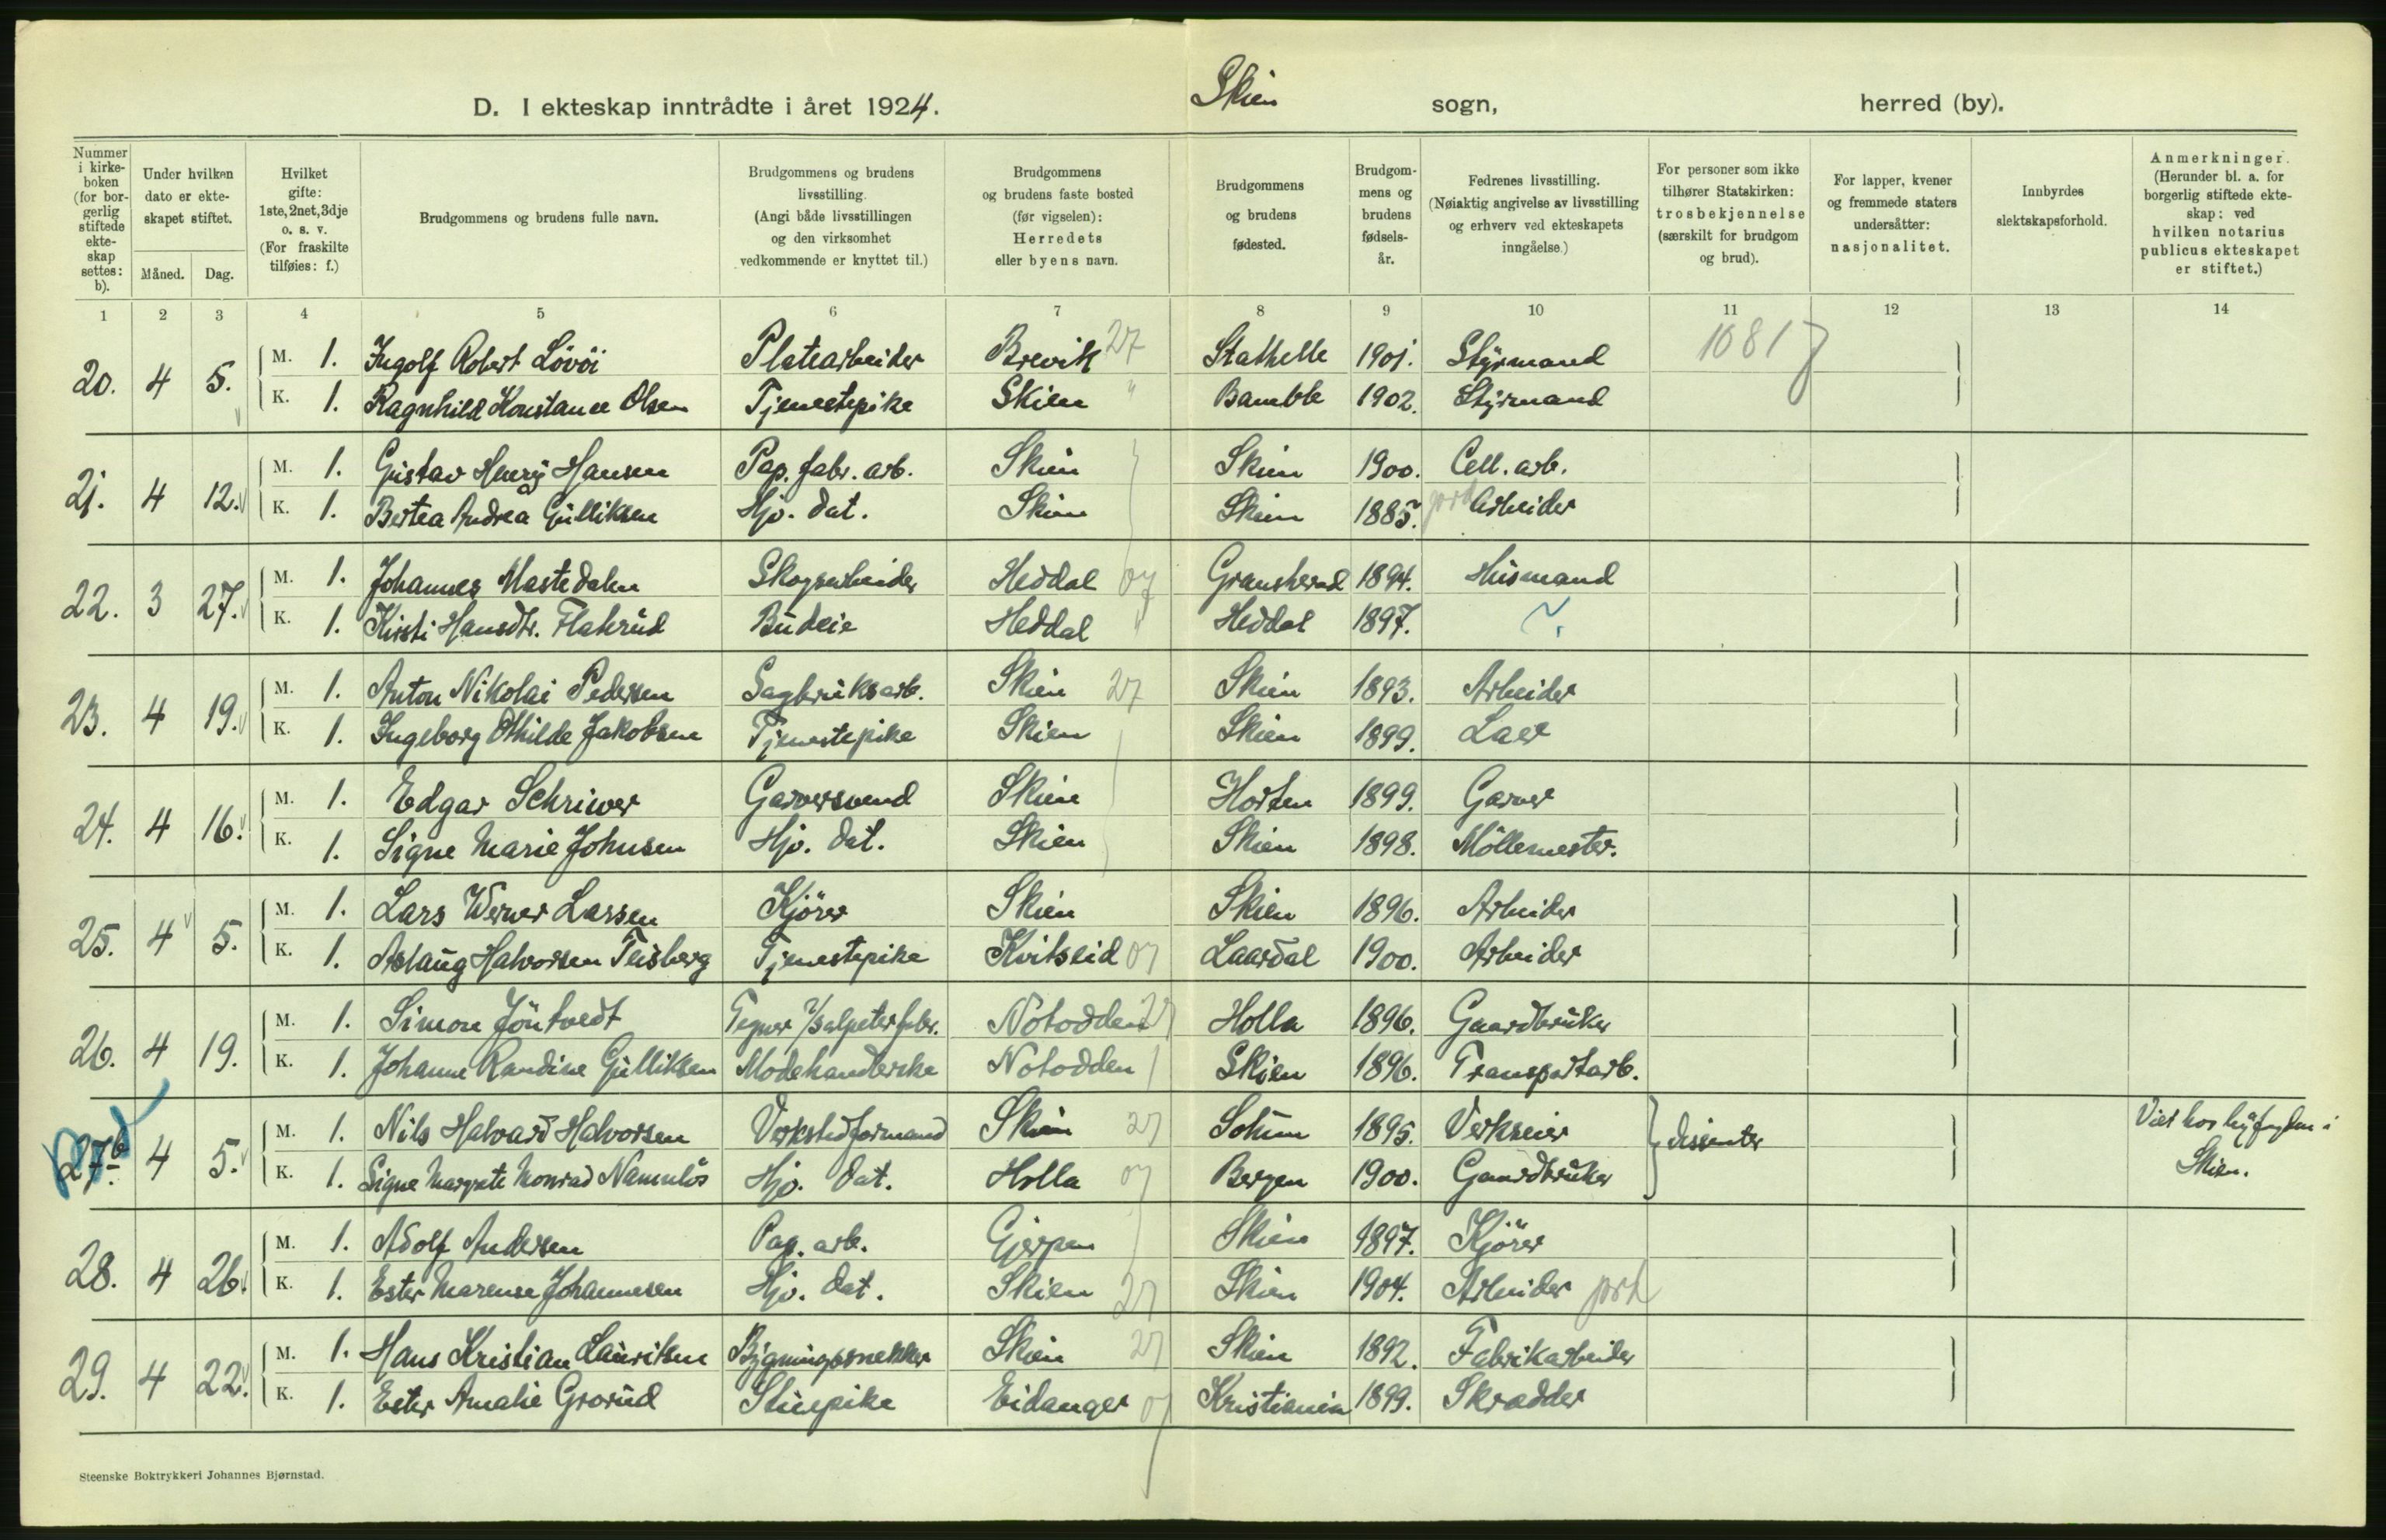 D. I ekteskap inntrådte i året 1924. Skien sogn, herred (by).
Nummer i kirkeboken (for borgerlig stiftede ekteskap settes: b).
Under hvilken dato er ekteskapet stiftet.
Måned. Dag.
Hvilket gifte: 1ste, 2net, 3dje o. s. v. (For fraskilte tilføies: f.)
Brudgommens og brudens fulle navn.
Brudgommens og brudens livsstilling. (Angi både livsstillingen og den virksomhet vedkommende er knyttet til.)
Brudgommens og brudens faste bosted (før vigselen): Herredets eller byens navn.
Brudgommens og brudens fødested.
Brudgommens og brudens fødselsår.
Fedrenes livsstilling. (Nøiaktig angivelse av livsstilling og erhverv ved ekteskapets inngåelse.)
For personer som ikke tilhører Statskirken: trosbekjennelse (særskilt for brudgom og brud).
For lapper, kvener og fremmede staters undersåtter: nasjonalitet.
Innbyrdes slektskapsforhold.
Anmerkninger. (Herunder bl. a. for borgerlig stiftede ekteskap: ved hvilken notarius publicus ekteskapet er stiftet.)
1 2 3 4 5 6 7 8 9 10 11 12 13 14
20. 4 5. M. 1. Ingolf Robert Lövöi Platearbeider Brevik 27 Stathelle 1901. Styrmand 10817
K. 1. Ragnhild Konstanse Olsen Tjenestepike Skien " Bamble 1902. Styrmand
21. 4 12. M. 1. Gustav Henry Hansen Pap. fabr. arb. Skien Skien 1900. Cell. arb.
K. 1. Bertea Andrea Gulliksen Hjv. dat. Skien Skien 1885. Arbeider
22. 3 27. M. 1. Johannes Mastedalen Skogsarbeider Heddal 07 Gransherad 1894. Husmand
K. 1. Kirsti Hansdtr. Flakrud Budeie Heddal " Heddal 1897. ?
23. 4 19. M. 1. Anton Nikolai Pedersen Sagbruksarb. Skien 27 Skien 1893. Arbeider
K. 1. Ingeborg Othilde Jakobsen Tjenestepike Skien Skien 1899. Laer
24. 4 16. M. 1. Edgar Schriwer Garversvend Skien Horten 1899. Garver
K. 1. Signe Marie Johnsen Hjv. dat. Skien Skien 1898. Möllemester.
25. 4 5. M. 1. Lars Werner Larsen Kjörer Skien Skien 1896. Arbeider
K. 1. Aslaug Halvorsen Teisberg Tjenestepike Kvitseid 07 Laardal 1900. Arbeider
26. 4 19. M. 1. Simon Jöntvedt Tegner v/salpeterfabr. Notodden 27 Holla 1896. Gaardbruker
K. 1. Johanne Randine Gulliksen Modehandlerske Notodden Skien 1896. Transportarb.
27. b 4 5. M. 1. Nils Halvard Halvorsen Verkstedformand Skien 27 Solum 1895. Verkseier dissenter Viet hos byfogden i
K. 1. Signe Margrete Monrad Namnlös Hjv. dat. Holla 07 Bergen 1900. Gaardbruker Skien.
28. 4 26. M. 1. Adolf Andersen Pap. arb. Gjerpen Skien 1897. Kjörer
K. 1. Ester Marense Johannesen Hjv. dat. Skien 27 Skien 1904. Arbeider
29. 4 22. M. 1. Hans Kristian Lauritsen Bygningssnekker Skien 27 Skien 1892. Fabrikarbeider
K. 1. Ester Amalie Grorud Stuepike Eidanger 07 Kristiania 1899. Skrædder
Steenske Boktrykkeri Johannes Bjørnstad.